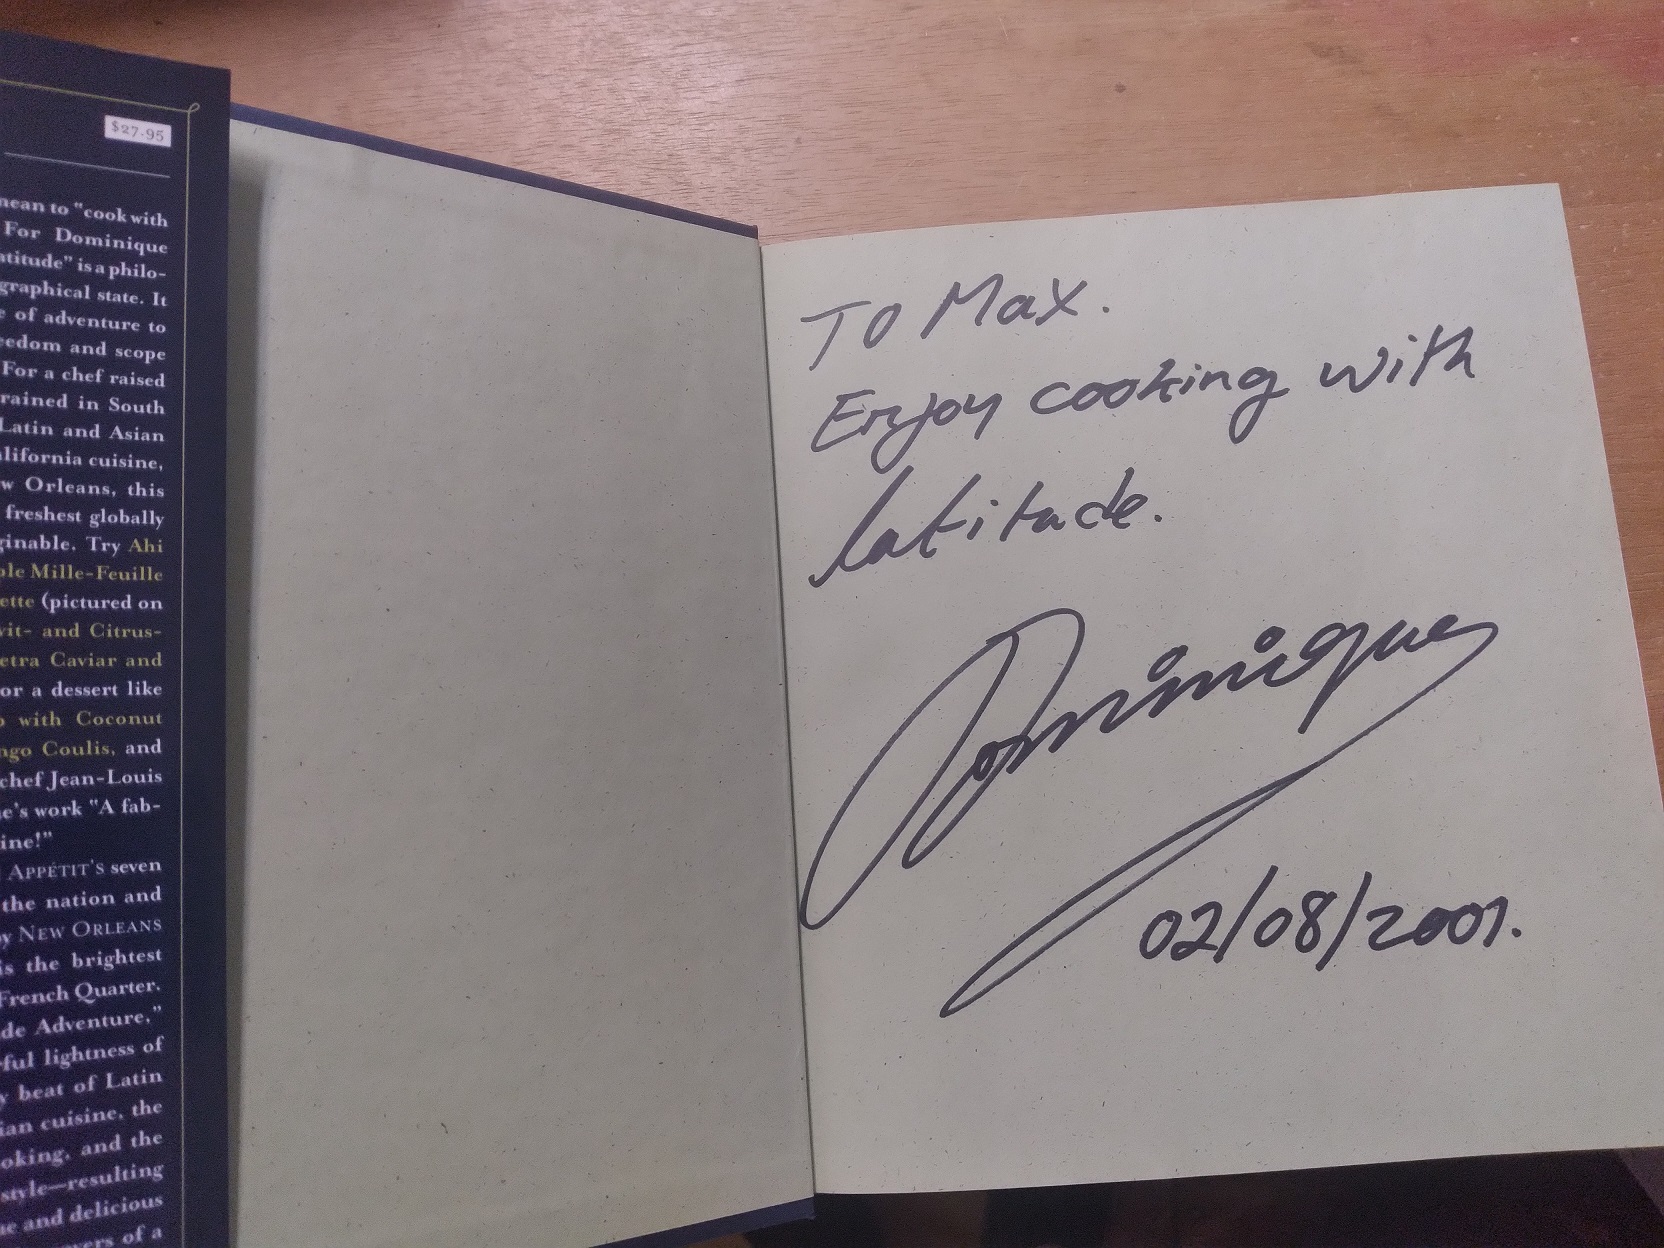 $27.95
"cook with
For Dominique
is a philo-
state. It
of adventure to
and scope
For a chef raised
in South
Latin and Asian
cuisine,
Orleans, this
freshest globally
Try Ahi
Mille-Feuille
(pictured on
and Citrus-
Caviar and
or a dessert like
with Coconut
Coulis, and
chef Jean-Louis
work "A fab-
APPÉTIT'S seven
the nation and
NEW ORLEANS
the brightest
French Quarter.
Adventure,"
lightness of
beat of Latin
cuisine, the
and the
style—resulting
and delicious
of a
To Max.
Enjoy cooking with
latitude.
Dominique
02/08/2001.